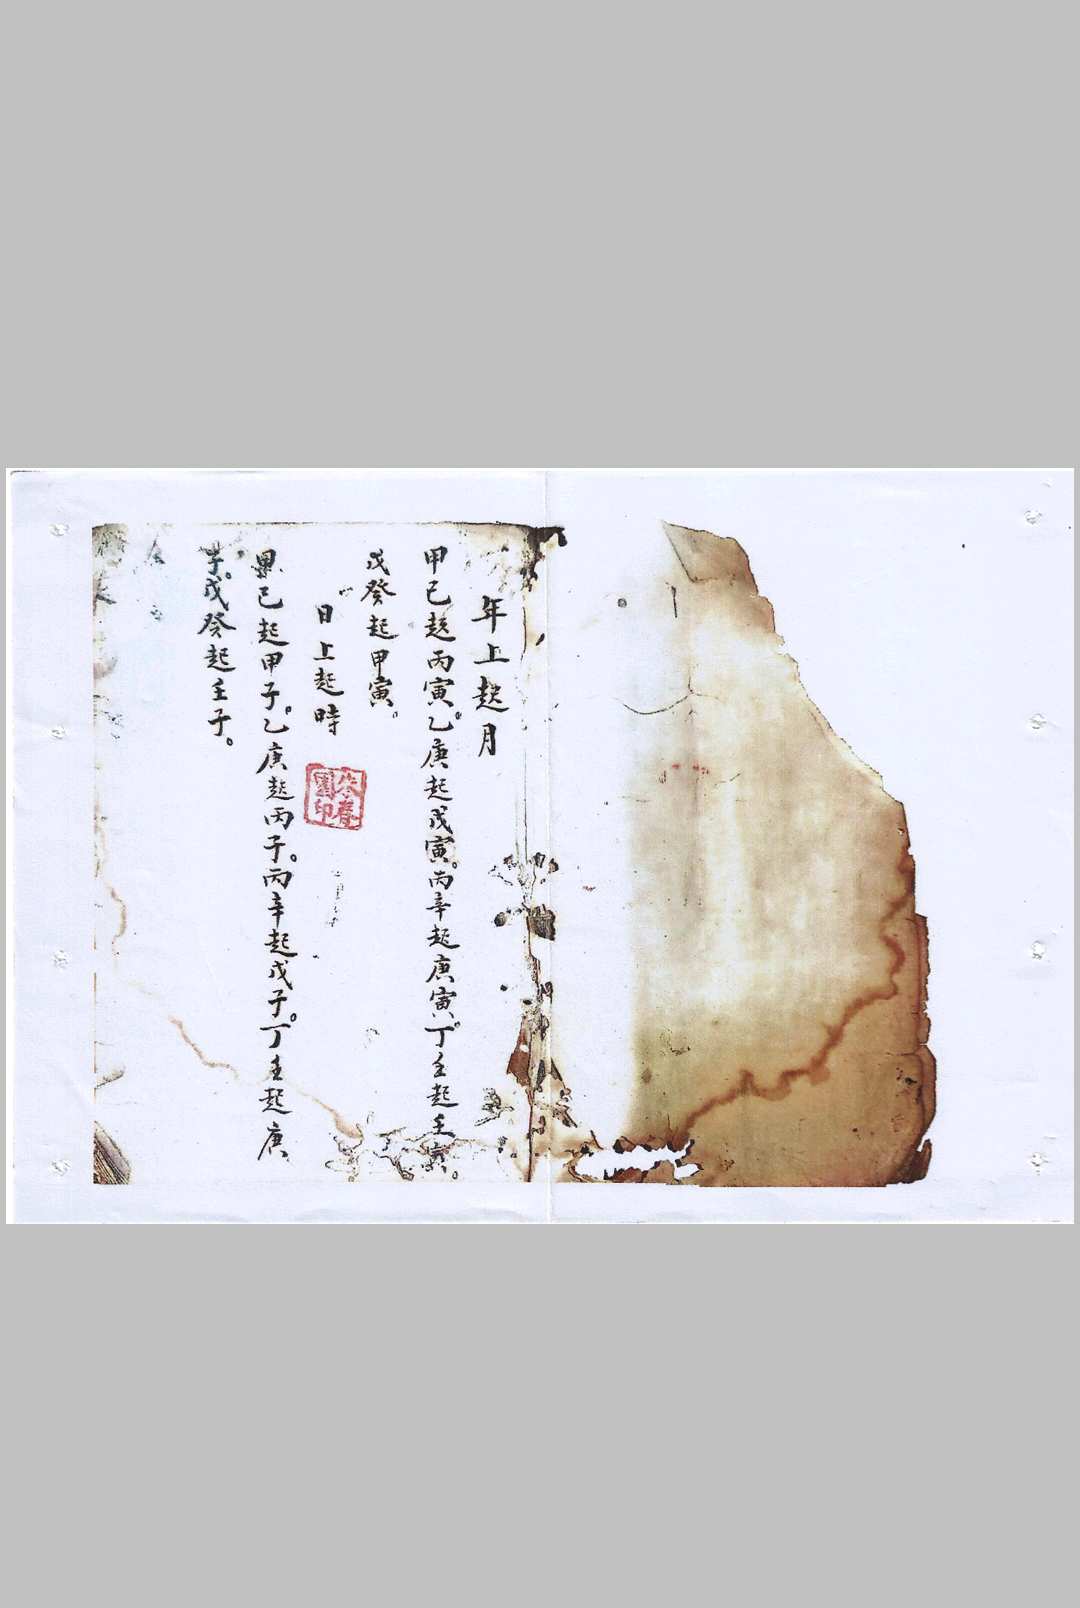 年上起月
甲己起丙寅。乙庚起戊寅。丙辛起庚寅。丁壬起壬寅。
戊癸起甲寅。
日上起時
甲己起甲子。乙庚起丙子。丙辛起戊子。丁壬起庚
子。戊癸起壬子。
朱春
園印